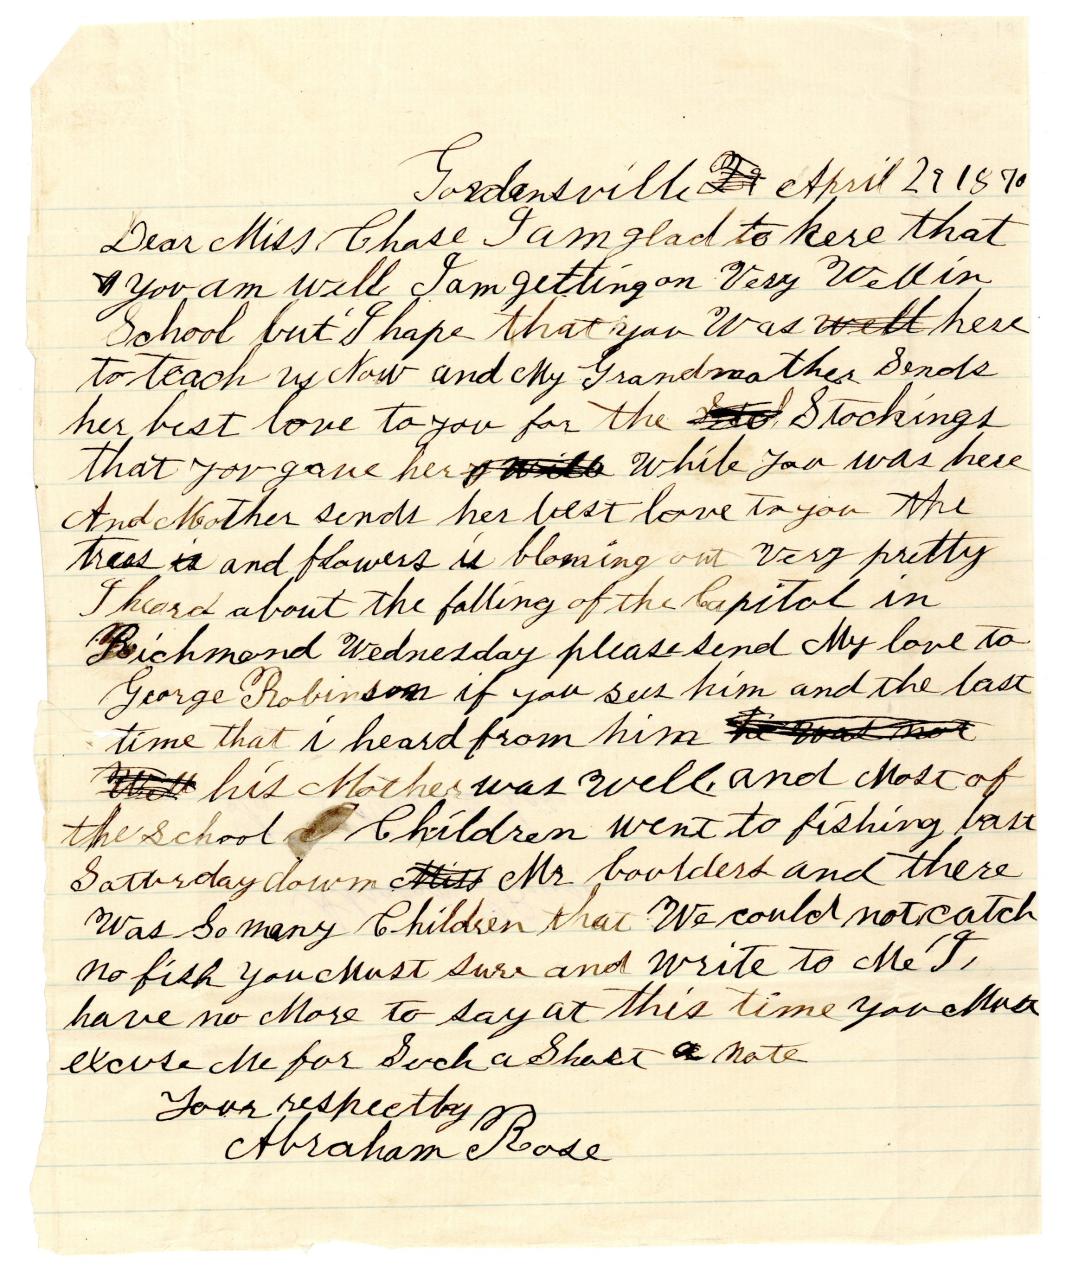 Gordensville April 29 1870
Dear Miss Chase I am glad to here that
you am well I am getting on Very Well in
School but I hope that you Was well here
to teach us Now and My Grandmother Sends
her best love to you for the Stockings
that you gave her While you was here
And Mother sends her best love to you the
trees is and flowers is bloming out Very pretty
I heard about the falling of the Capitol in
Richmond Wednesday please send My love to
George Robinson if you sees him and the last
time that i heard from him he was not
Well his Mother was well. and Most of
the school Children went to fishing last
Saturday down Miss Mr boulders and there
Was So many Children that We could not catch
no fish you Must sure and Write to Me I,
have no More to say at this time you Must
excuse Me for Such a Short a note
Your respectby
Abraham Rose